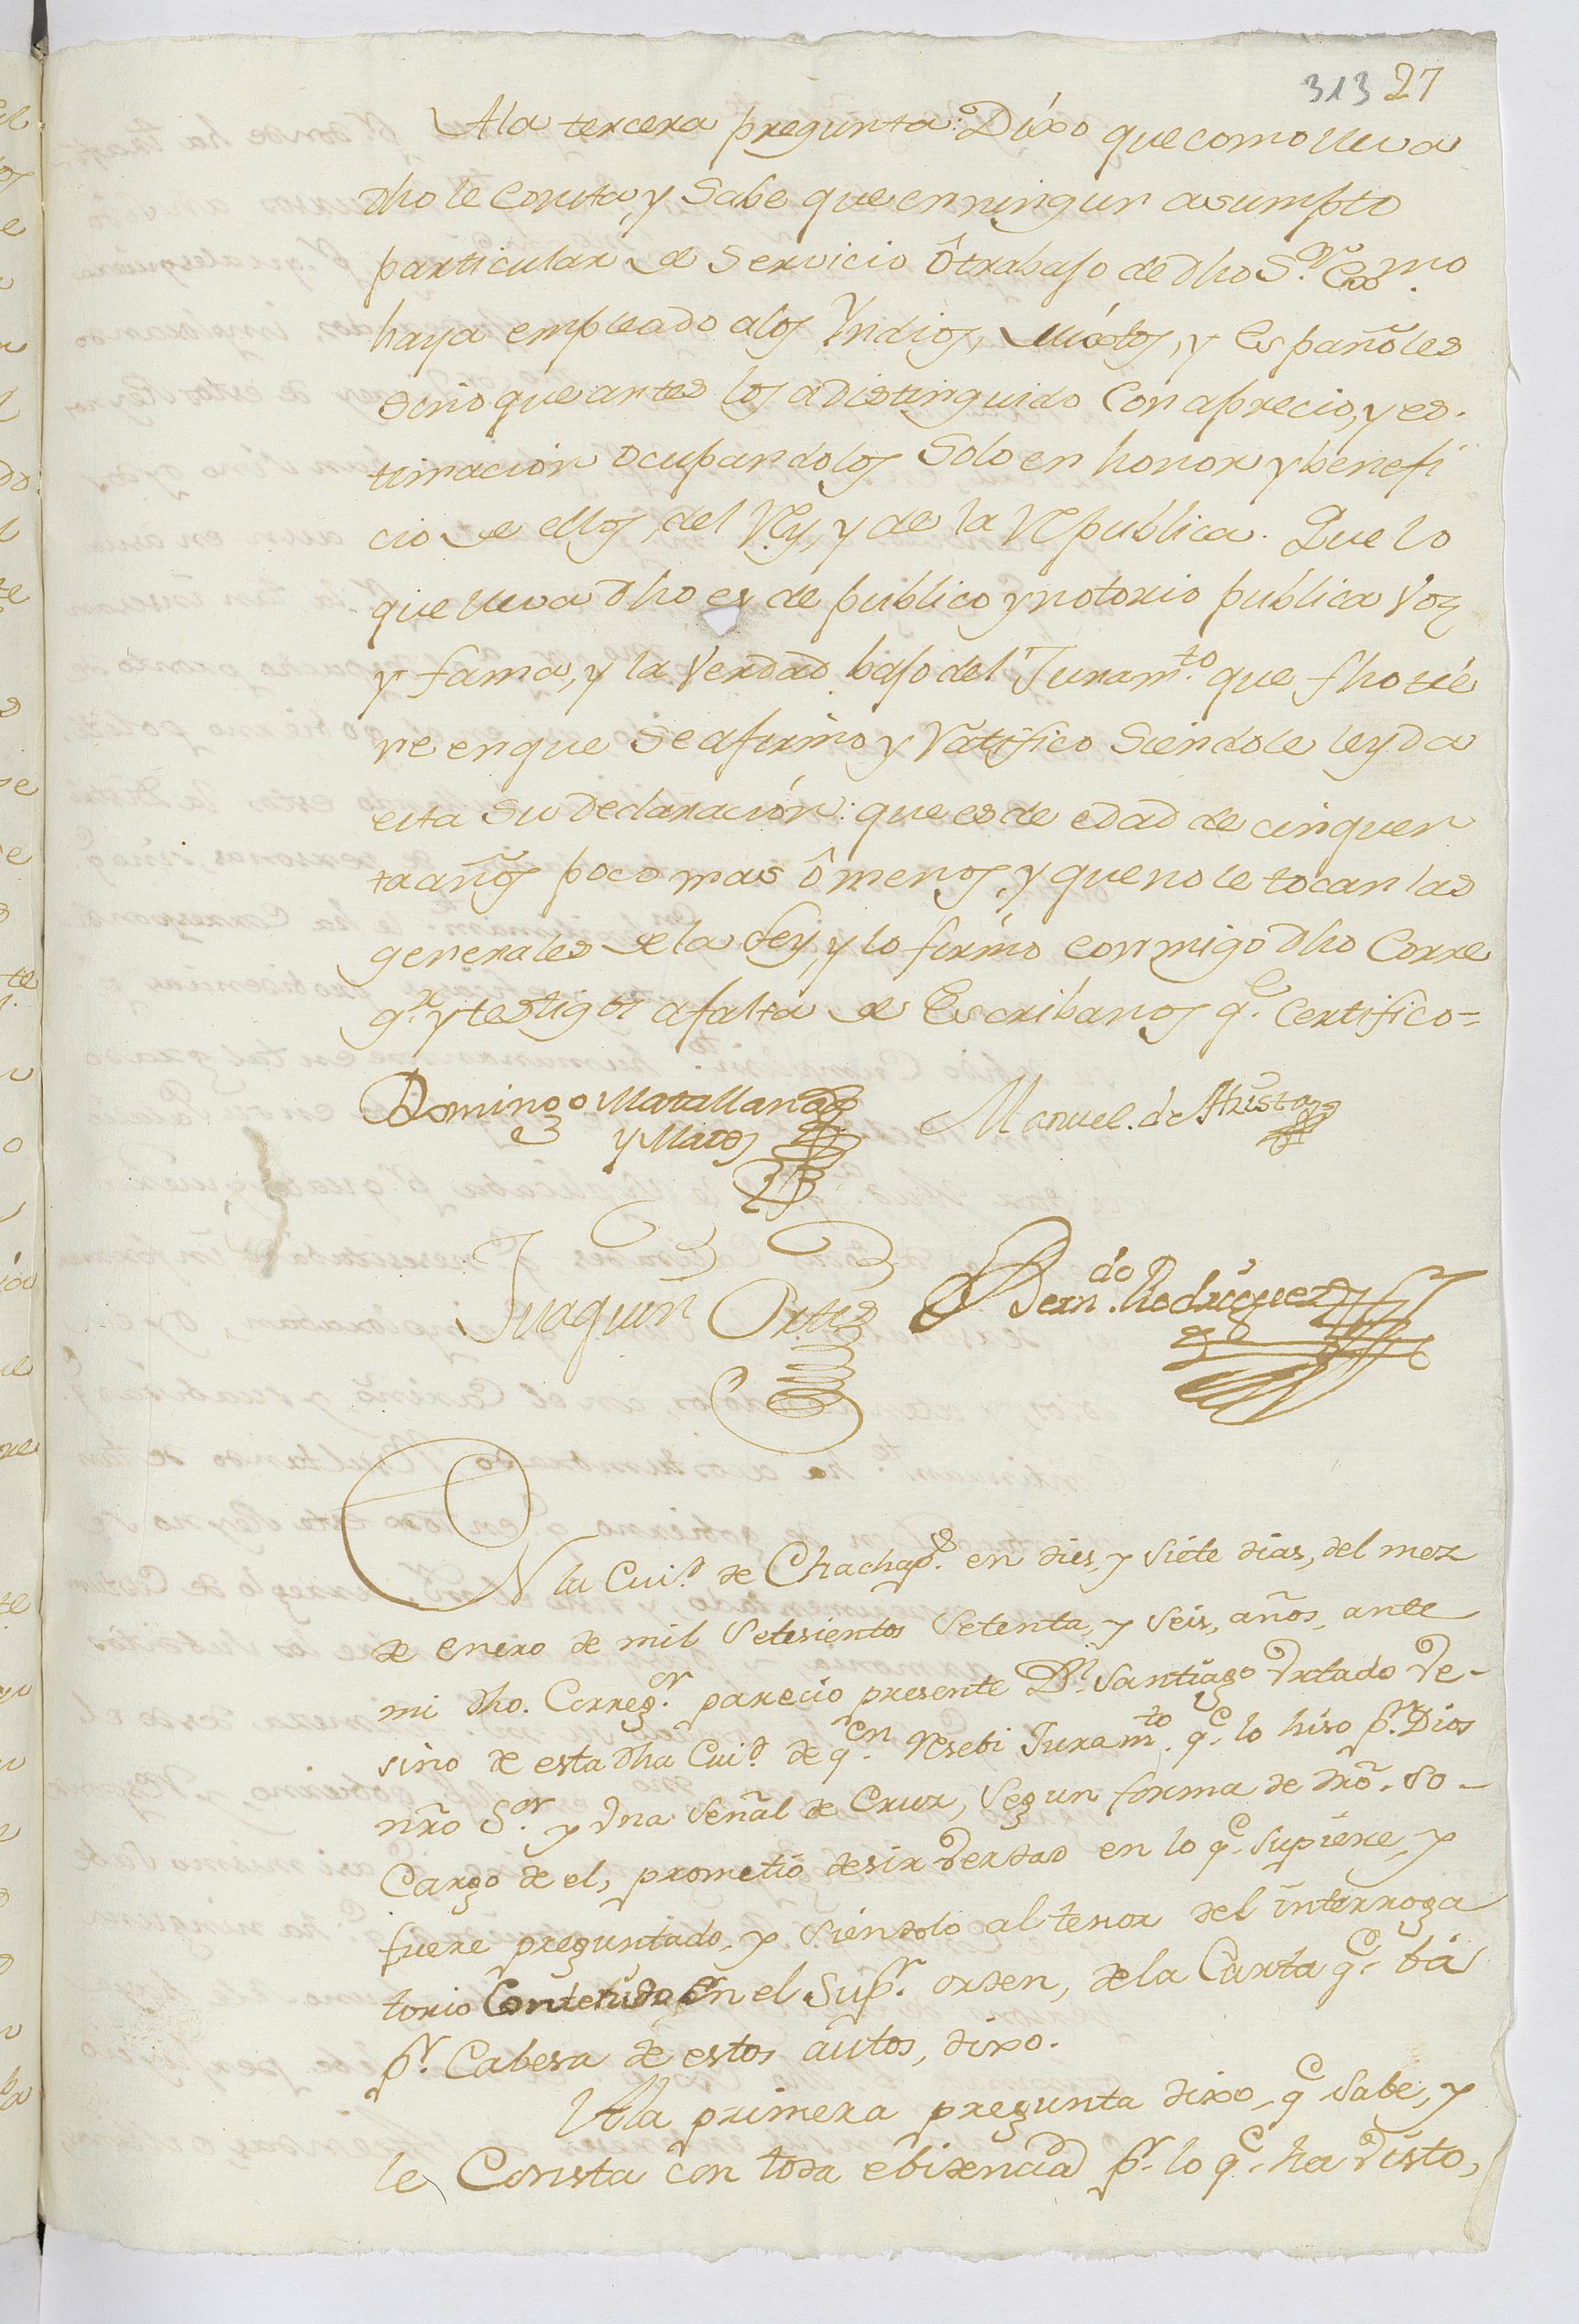 313 27
A la tercera pregunta: Dixo que como lleva
dho le consta, y Sabe que en ningun asumpto
particular de Servicio ô trabajo de dho S.or Exmo.
haya empleado a los Yndios, Mixtos, y Españoles
sino que antes los a distinguido Con aprecio, y es-
timacion ocupandolos Solo en honor y benefi
cio de ellos, del Rey, y de la Republica. Que lo
que lleva dho es de publico y notorio publica voz
y fama, y la Verdad bajo del Juram.to que fho tie
ne en que Se afirmo y Ratifico Siendole leyda
esta Su Declaración: que es de edad de cinquen
ta años poco mas ô menos, y que no le tocan las
generales de la Ley, y lo firmo conmigo dho Corre
g.r y testigos a falta de Escribanos q.e Certifico=
Domingo Matallana
y Matos
Manuel de
Juaquin Ortis
Bern.do Rodriguez
EN la Ciui.d de Chachap.s en dies, y siete dias, del mez
de enero de mil Setesientos Setenta, y Seis, años, ante
mi dho. Correg.or parecio presente D.n Santiago Vrtado Ve-
sino de esta dha Cui.d de q.en Resebi Juram.to q.e lo hiso p.r Dios
nro S.or y vna Señal de Crux, Segun forma de dro. So-
Cargo de el, prometio desir Verdad en lo q.e Supiere, y
fuere preguntado, y Siendolo al tenor del interroga
torio Contenido En el Sup.r orden, de la Carta q.e ba
p.r Cabesa de estos autos, dixo.
A la primera pregunta dixo, q.e Sabe, y
le Consta con toda ebidencia p.r lo q.e ha Visto,